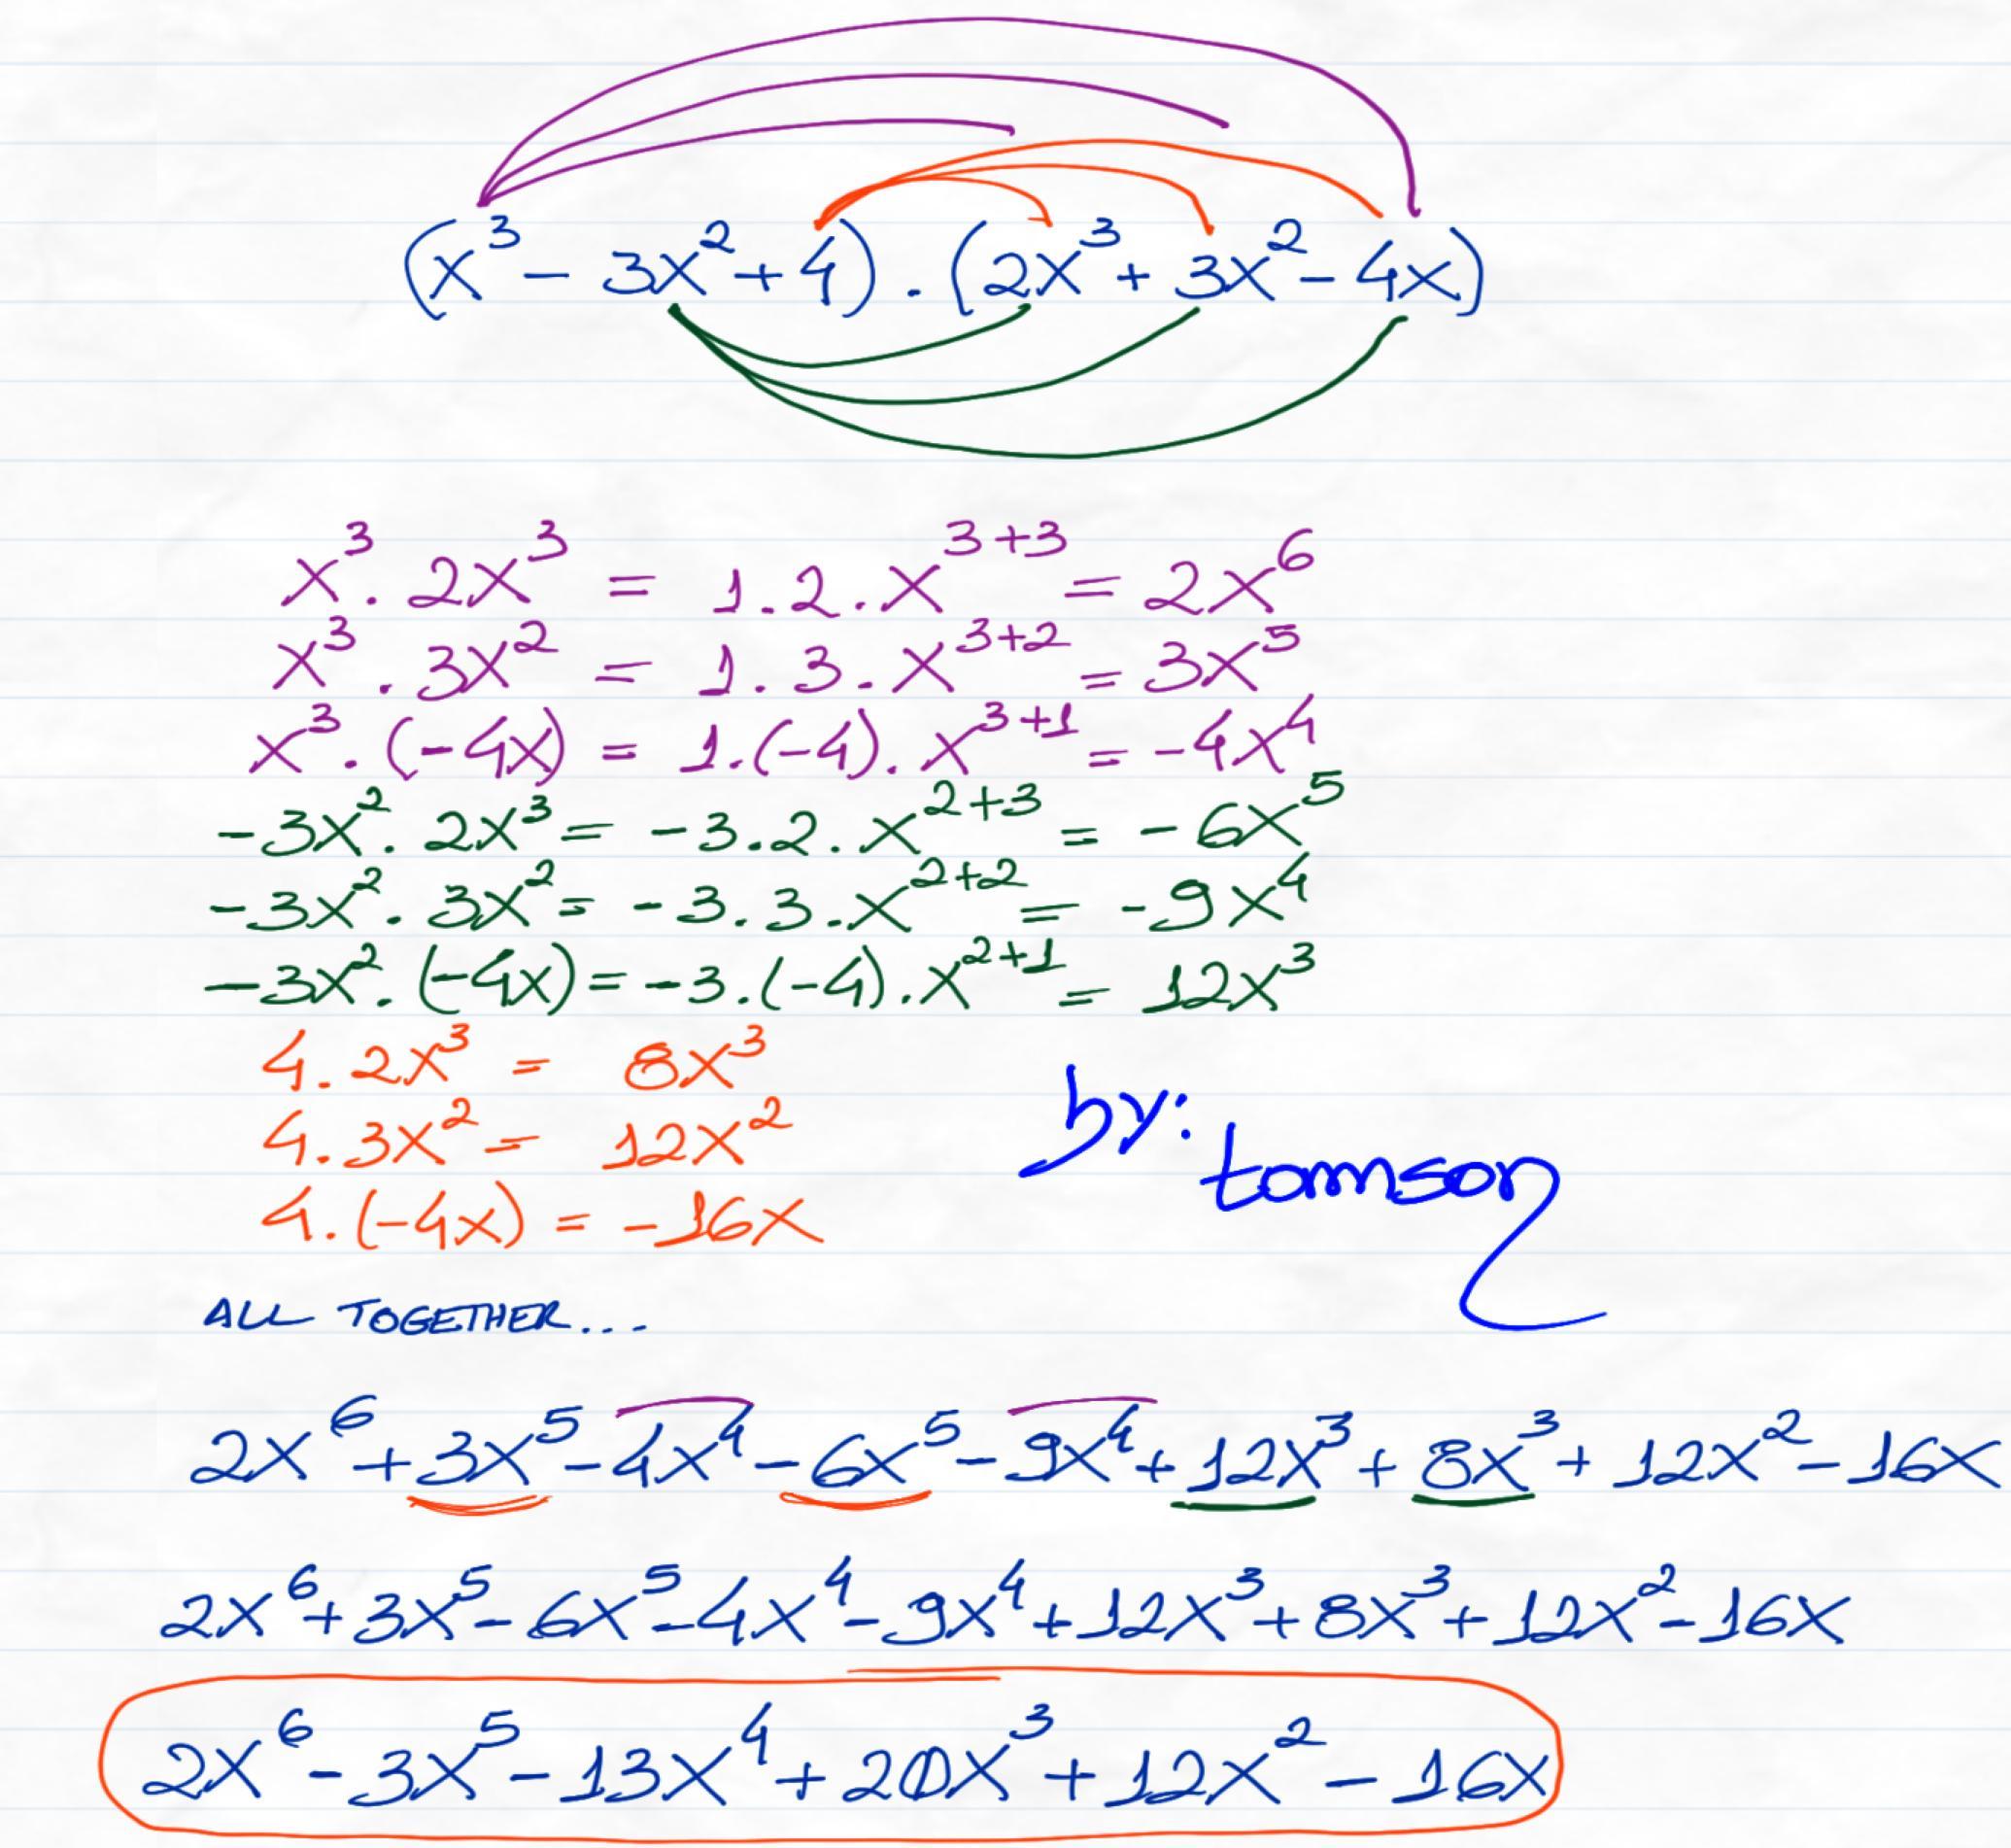 (x³ - 3x² + 4) . (2x³ + 3x² - 4x)
x³ . 2x³ = 1 . 2 . x³⁺³ = 2x⁶
x³ . 3x² = 1 . 3 . x³⁺² = 3x⁵
x³ . (-4x) = 1 . (-4) . x³⁺¹ = -4x⁴
-3x² . 2x³ = -3 . 2 . x²⁺³ = -6x⁵
-3x² . 3x² = -3 . 3 . x²⁺² = -9x⁴
-3x² . (-4x) = -3 . (-4) . x²⁺¹ = 12x³
4 . 2x³ = 8x³
4 . 3x² = 12x²
4 . (-4x) = -16x
by:
tomson
ALL TOGETHER...
2x⁶ + 3x⁵ - 4x⁴ - 6x⁵ - 9x⁴ + 12x³ + 8x³ + 12x² - 16x
2x⁶ + 3x⁵ - 6x⁵ - 4x⁴ - 9x⁴ + 12x³ + 8x³ + 12x² - 16x
2x⁶ - 3x⁵ - 13x⁴ + 20x³ + 12x² - 16x